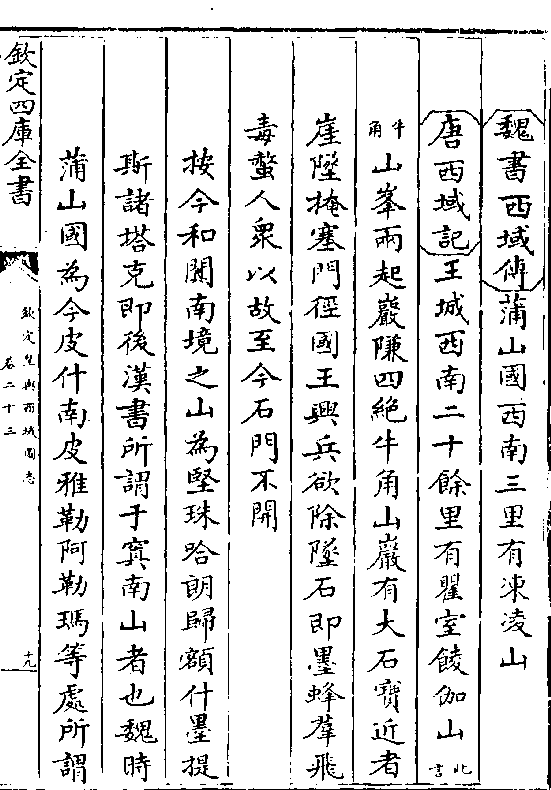 魏書西域傳蒲山國西南三里有凍凌山
唐西域記王城西南二十餘里有瞿室餕伽山此言
牛角山峯兩起巖隒四絕牛角山巖有大石寶近者
崖墜掩塞門徑國王興兵欲除墜石即墨蜂羣飛
毒螫人衆以故至今石門不開
按今和闐南境之山為堅珠哈朗歸額什墨提
斯諸塔克即後漢書所謂于窴南山者也魏時
蒲山國為今皮什南皮雅勒阿勒瑪等處所謂
欽定四庫全書
欽定皇輿西域圖志
卷二十三
十九